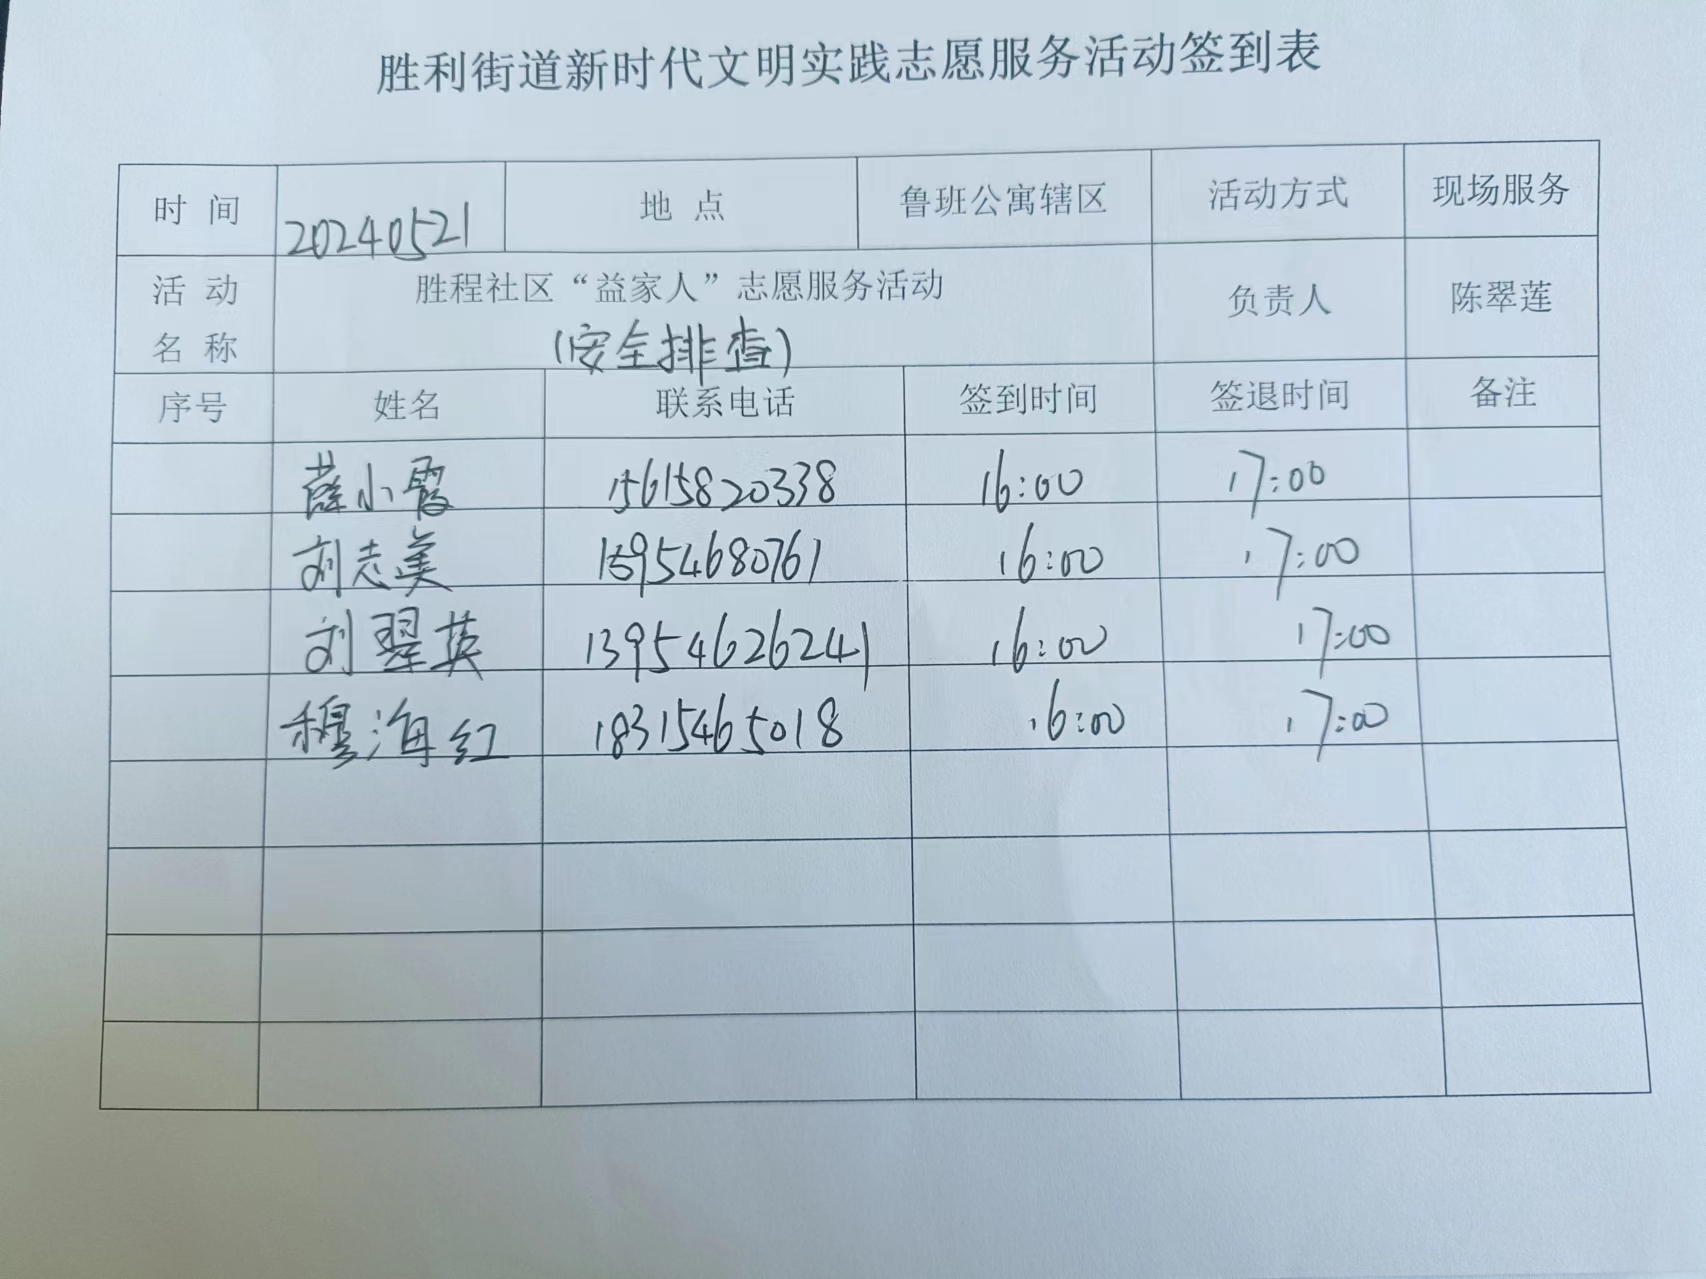 胜利街道新时代文明实践志愿服务活动签到表
时 间 20240521 地 点 鲁班公寓辖区 活动方式 现场服务
活 动 名 称 胜程社区“益家人”志愿服务活动 负责人 陈翠莲
(安全排查)
序号 姓名 联系电话 签到时间 签退时间 备注
薛小霞 15615820338 16:00 17:00
刘志美 16:00 17:00
刘翠英 13954626241 16:00 17:00
穆海红 18315465018 16:00 17:00